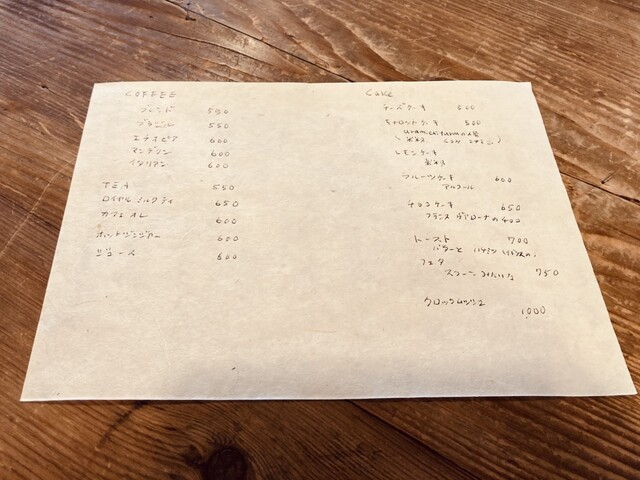 COFFEE
ブレンド 550
ブラジル 550
エチオピア 600
マンデリン 600
イタリアン 600
TEA 550
ロイヤルミルクティ 650
カフェオレ 600
ホットジンジャー 600
ジュース 600
Cake
チーズケーキ 500
キャロットケーキ 500
レモンケーキ
フルーツケーキ 600
アルコール
チョコケーキ 650
フランス ヴァローナのチョコ
トースト 700
バターと
フェタ
スコーンみたいな 750
クロックムッシュ
1,000